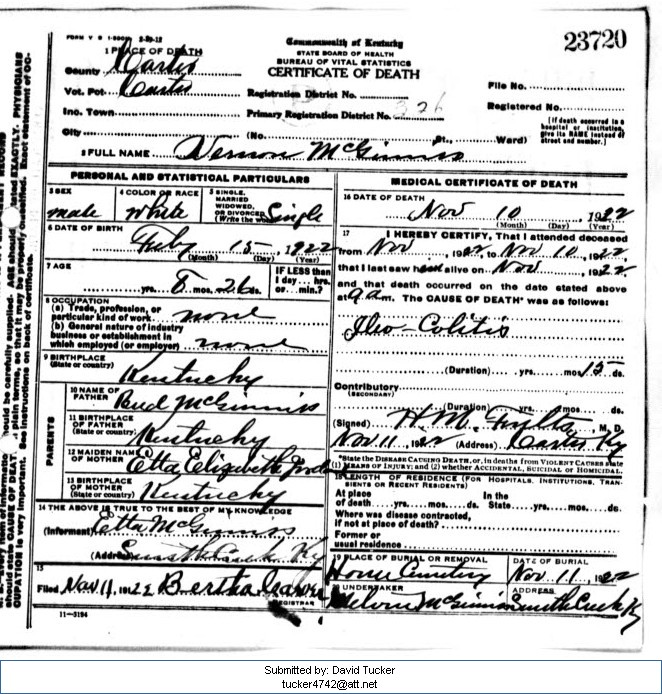 FORM V S 1-500M 2-29-12
Commonwealth of Kentucky
STATE BOARD OF HEALTH
BUREAU OF VITAL STATISTICS
CERTIFICATE OF DEATH
23720
1 PLACE OF DEATH
County Carter
Vot. Pct. Carter
Inc. Town
City
Registration District No.
Primary Registration District No. 326
File No.
Registered No.
[If death occurred in a hospital or institution, give its NAME instead of street and number.]
(No. St., Ward)
2 FULL NAME Vernon McGinnis
PERSONAL AND STATISTICAL PARTICULARS
3 SEX male
4 COLOR OR RACE white
5 SINGLE, MARRIED WIDOWED, OR DIVORCED (Write the word) Single
6 DATE OF BIRTH Feby 15, 1922
(Month) (Day) (Year)
7 AGE yrs. 8 mos. 26 ds.
IF LESS than 1 day... hrs. or... min.?
8 OCCUPATION
(a) Trade, profession, or particular kind of work none
(b) General nature of industry business or establishment in which employed (or employer) none
9 BIRTHPLACE (State or country) Kentucky
PARENTS
10 NAME OF FATHER Bud McGinnis
11 BIRTHPLACE OF FATHER (State or country) Kentucky
12 MAIDEN NAME OF MOTHER Etta Elizabeth
13 BIRTHPLACE OF MOTHER (State or country) Kentucky
14 THE ABOVE IS TRUE TO THE BEST OF MY KNOWLEDGE
(Informant) Etta McGinnis
(Address) Smith Creek Ky
15
Filed Nov 11, 1922 Bertha
REGISTRAR
11-3194
MEDICAL CERTIFICATE OF DEATH
16 DATE OF DEATH Nov 10, 1922
(Month) (Day) (Year)
17 I HEREBY CERTIFY, That I attended deceased
from Nov, 1922, to Nov 10, 1922,
that I last saw h alive on Nov, 1922
and that death occurred on the date stated above
at 9 a.m. The CAUSE OF DEATH* was as follows:
Ileo-Colitis
(Duration) yrs. mos 15 ds.
Contributory
(SECONDARY)
(Duration) yrs. mos. ds.
(Signed) H. M. M. D.
Nov 11, 1922 (Address) Carter Ky
*State the DISEASE CAUSING DEATH, or, in deaths from VIOLENT CAUSES state
(1) MEANS OF INJURY; and (2) whether ACCIDENTAL, SUICIDAL or HOMICIDAL.
18 LENGTH OF RESIDENCE (FOR HOSPITALS, INSTITUTIONS, TRANSIENTS OR RECENT RESIDENTS)
At place of death yrs. mos. ds. In the State yrs. mos. ds.
Where was disease contracted, if not at place of death?
Former or usual residence
19 PLACE OF BURIAL OR REMOVAL Home Cemetery
DATE OF BURIAL Nov. 11, 1922
20 UNDERTAKER McGinnis
ADDRESS Smith Creek Ky
4
Submitted by: David Tucker
tucker4742@att.net